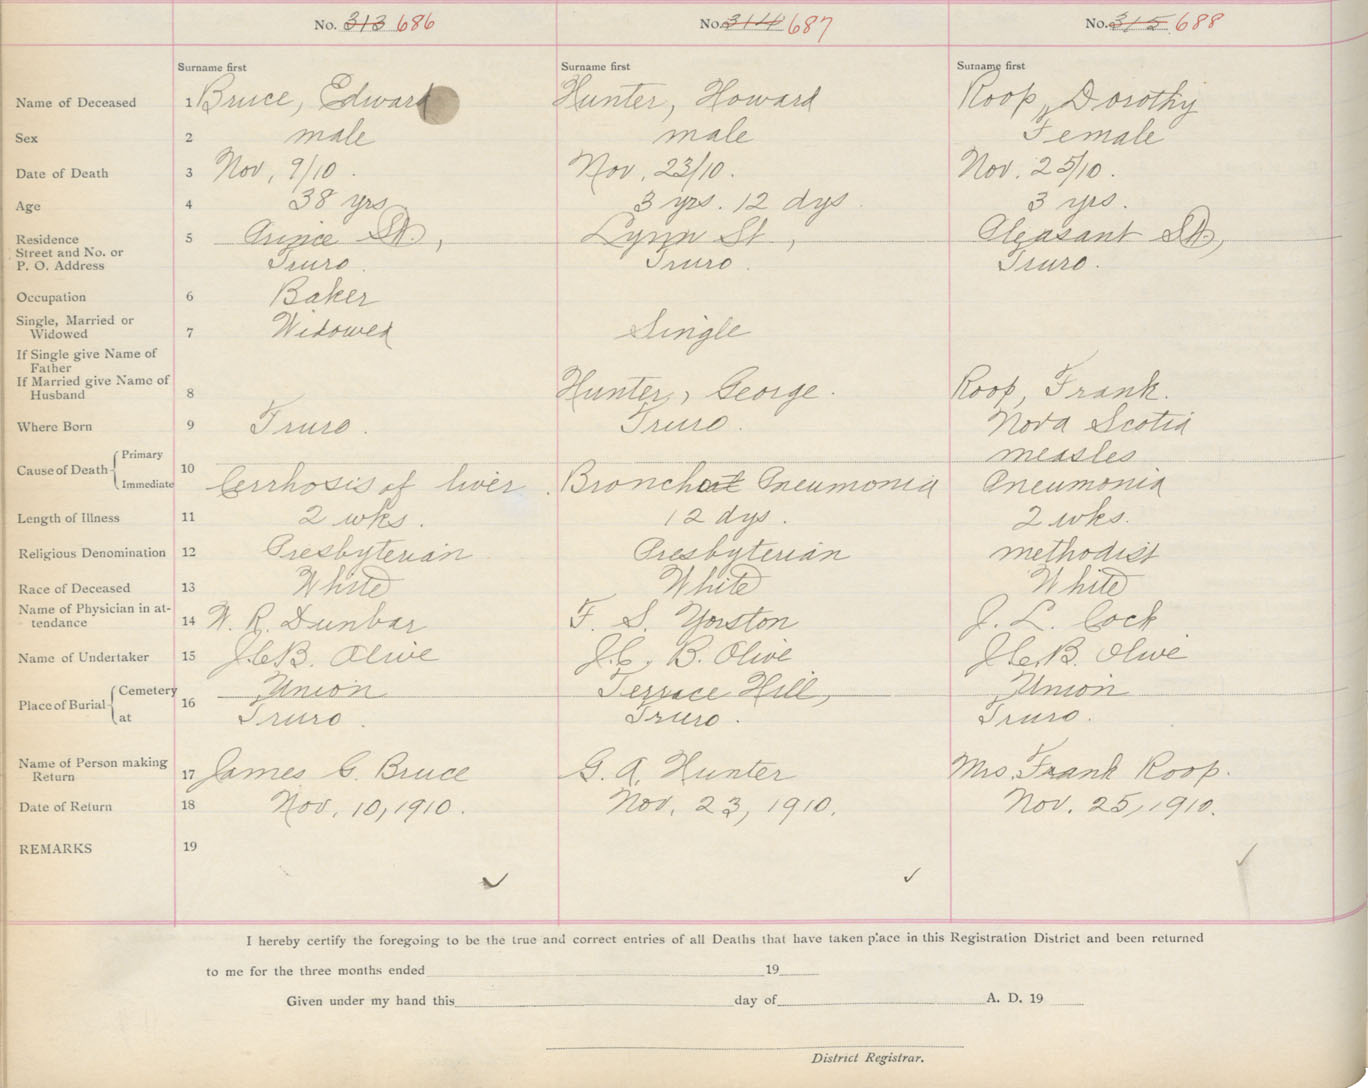 No. 313 686 No. 314 687 No. 315 688
Surname first Surname first Surname first
Name of Deceased 1 Bruce, Edward Hunter, Howard Roop, Dorothy
Sex 2 male male Female
Date of Death 3 Nov, 9/10. Nov, 23/10. Nov. 25/10.
Age 4 38 yrs. 3 yrs. 12 dys. 3 yrs.
Residence 5 Prince St., Lynn St., Pleasant St.,
Street and No. or
P. O. Address Truro. Truro. Truro.
Occupation 6 Baker
Single, Married or
Widowed 7 Widowed Single
If Single give Name of
Father
If Married give Name of
Husband 8 Hunter, George. Roop, Frank.
Where Born 9 Truro. Truro. Nova Scotia
Primary measles
Cause of Death 10
Immediate Cerrhosis of liver. Bronchial Pneumonia Pneumonia
Length of Illness 11 2 wks. 12 dys. 2 wks.
Religious Denomination 12 Presbyterian Presbyterian methodist
Race of Deceased 13 White White White
Name of Physician in at-
tendance 14 W. R. Dunbar F. S. Yorston J. L. Cock
Name of Undertaker 15 J.C.B. Olive J.C. B. Olive J.C.B. Olive
Cemetery Union Terrace Hill, Union
Place of Burial 16
at Truro. Truro. Truro.
Name of Person making
Return 17 James G. Bruce G. A. Hunter Mrs. Frank Roop.
Date of Return 18 Nov. 10, 1910. Nov. 23, 1910. Nov. 25, 1910.
REMARKS 19
I hereby certify the foregoing to be the true and correct entries of all Deaths that have taken place in this Registration District and been returned
to me for the three months ended 19
Given under my hand this day of A. D. 19
District Registrar.